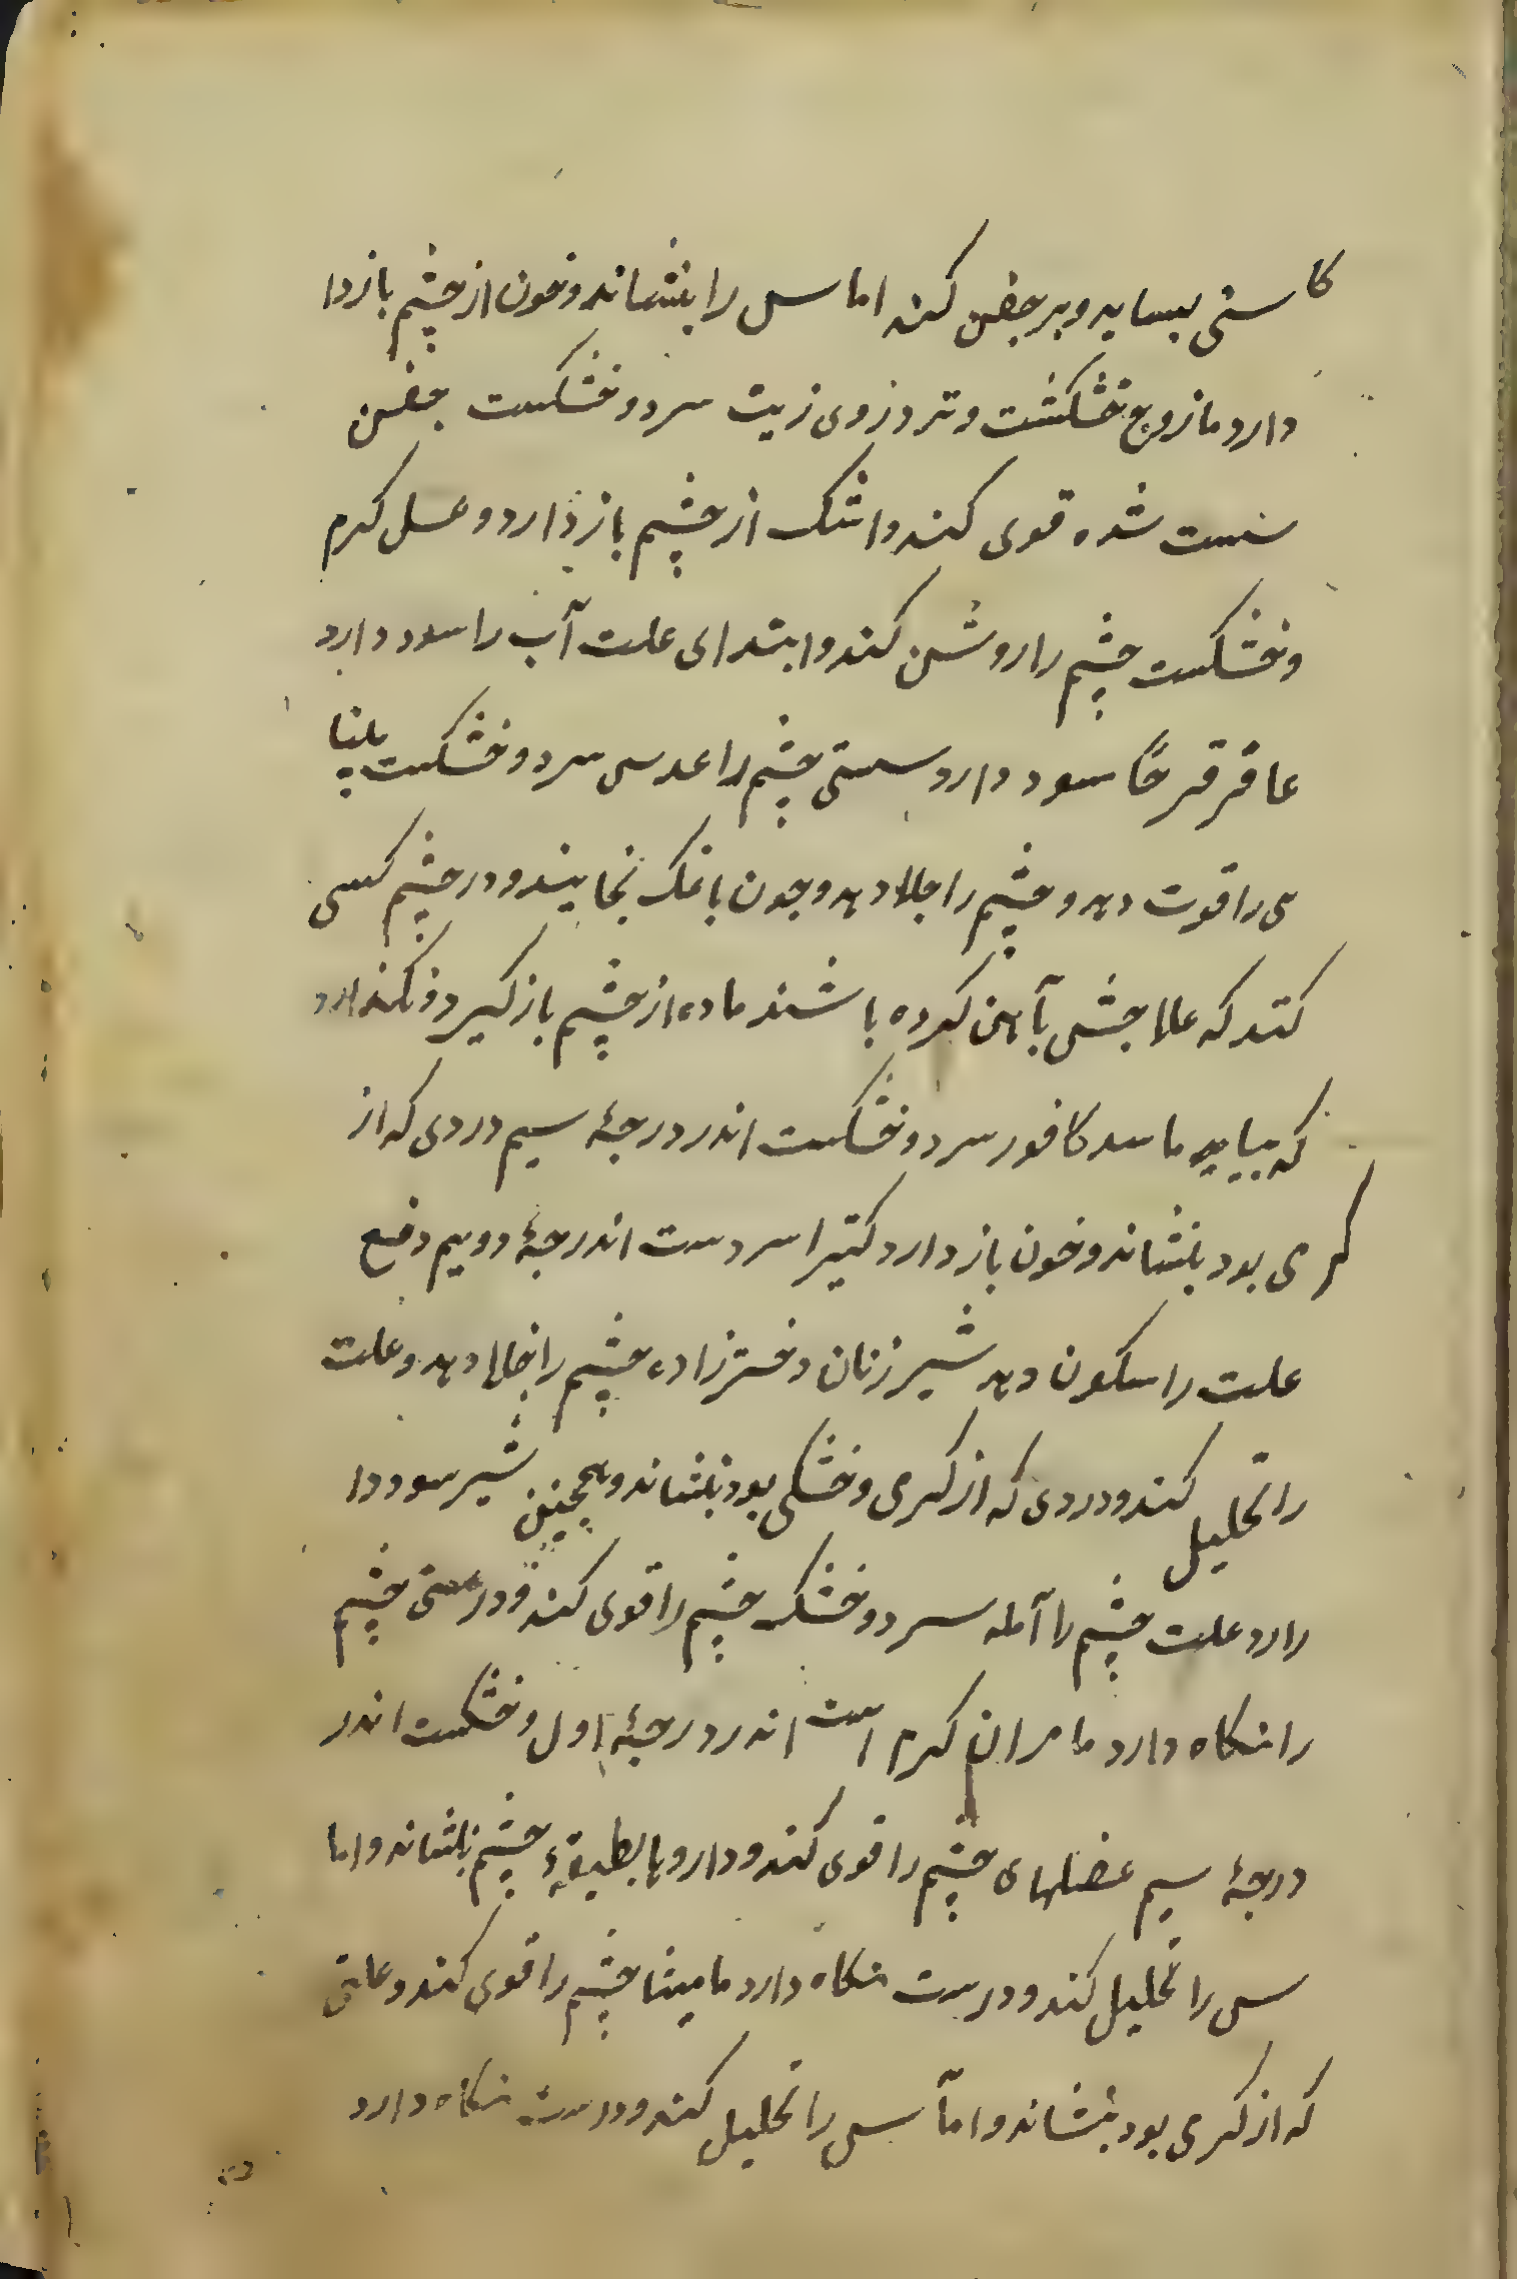 کاسنی بساید و بر جفن کند اماس را بنشاند و خون از چشم باز دا
دارد مازوج خشکشت و تر دزوی زیت سرد و خشکست جفن
سست شده قوی کند و اشک از چشم باز دارد و عسل کرم
و خشکست چشم را روشن کند و ابتدای علت آب را سود دارد
عاقرقرحا سود دارد سستی چشم را عدسی سرد و خشکست بینا
ی را قوت دهد و چشم را جلا دهد و چون با نمک بخایند و در چشم کسی
کنند که علاجش بآهن کرده باشند ماده از چشم باز کیرد و نکذارد
که بیاید کافور سرد و خشکست اندر درجهٔ سیم دردی که از
کرمی بود بنشاند و خون باز دارد کتیرا سردست اندر جهٔ دویم دفع
علت را سکون دهد شیر زنان دختر زاده چشم را جلا دهد و علت
را تحلیل کند و دردی که از کرمی و خشکی بود بنشاند و همچنین شیر سود دا
رد علت چشم را آمله سرد و خشک چشم را قوی کند و درستی چشم
را نکاه دارد مامران کرم است اندر درجهٔ اول و خشکست اندر
درجهٔ سیم عضلهای چشم را قوی کند و داروها بطبقهٔ چشم بنشاند و اما
س را تحلیل کند و درست نکاه دارد مامیثا چشم را قوی کند و علتی
که از کرمی بود بنشاند و آماس را تحلیل کند و درست نکاه دارد